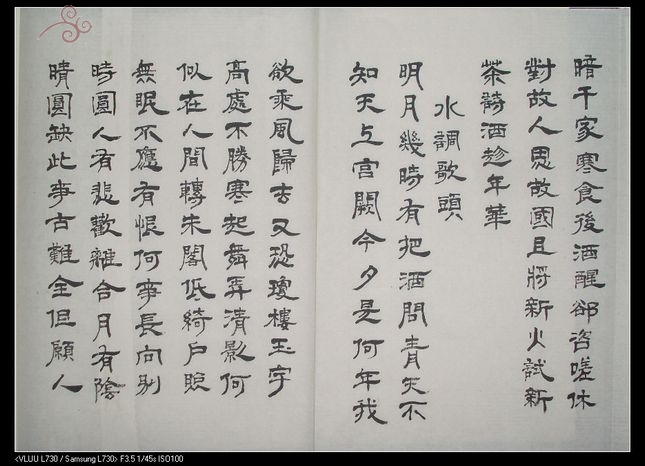 暗千家寒食後酒醒卻咨嗟休
對故人思故國且將新火試新
茶詩酒趁年華
水調歌頭
明月幾時有把酒問青天不
知天上宮闕今夕是何年我
欲乘風歸去又恐瓊樓玉宇
高處不勝寒起舞弄清影何
似在人間轉朱閣低綺戶照
無眠不應有恨何事長向別
時圓人有悲歡離合月有陰
晴圓缺此事古難全但願人
<VLUU L730 / Samsung L730> F3.5 1/45s ISO100